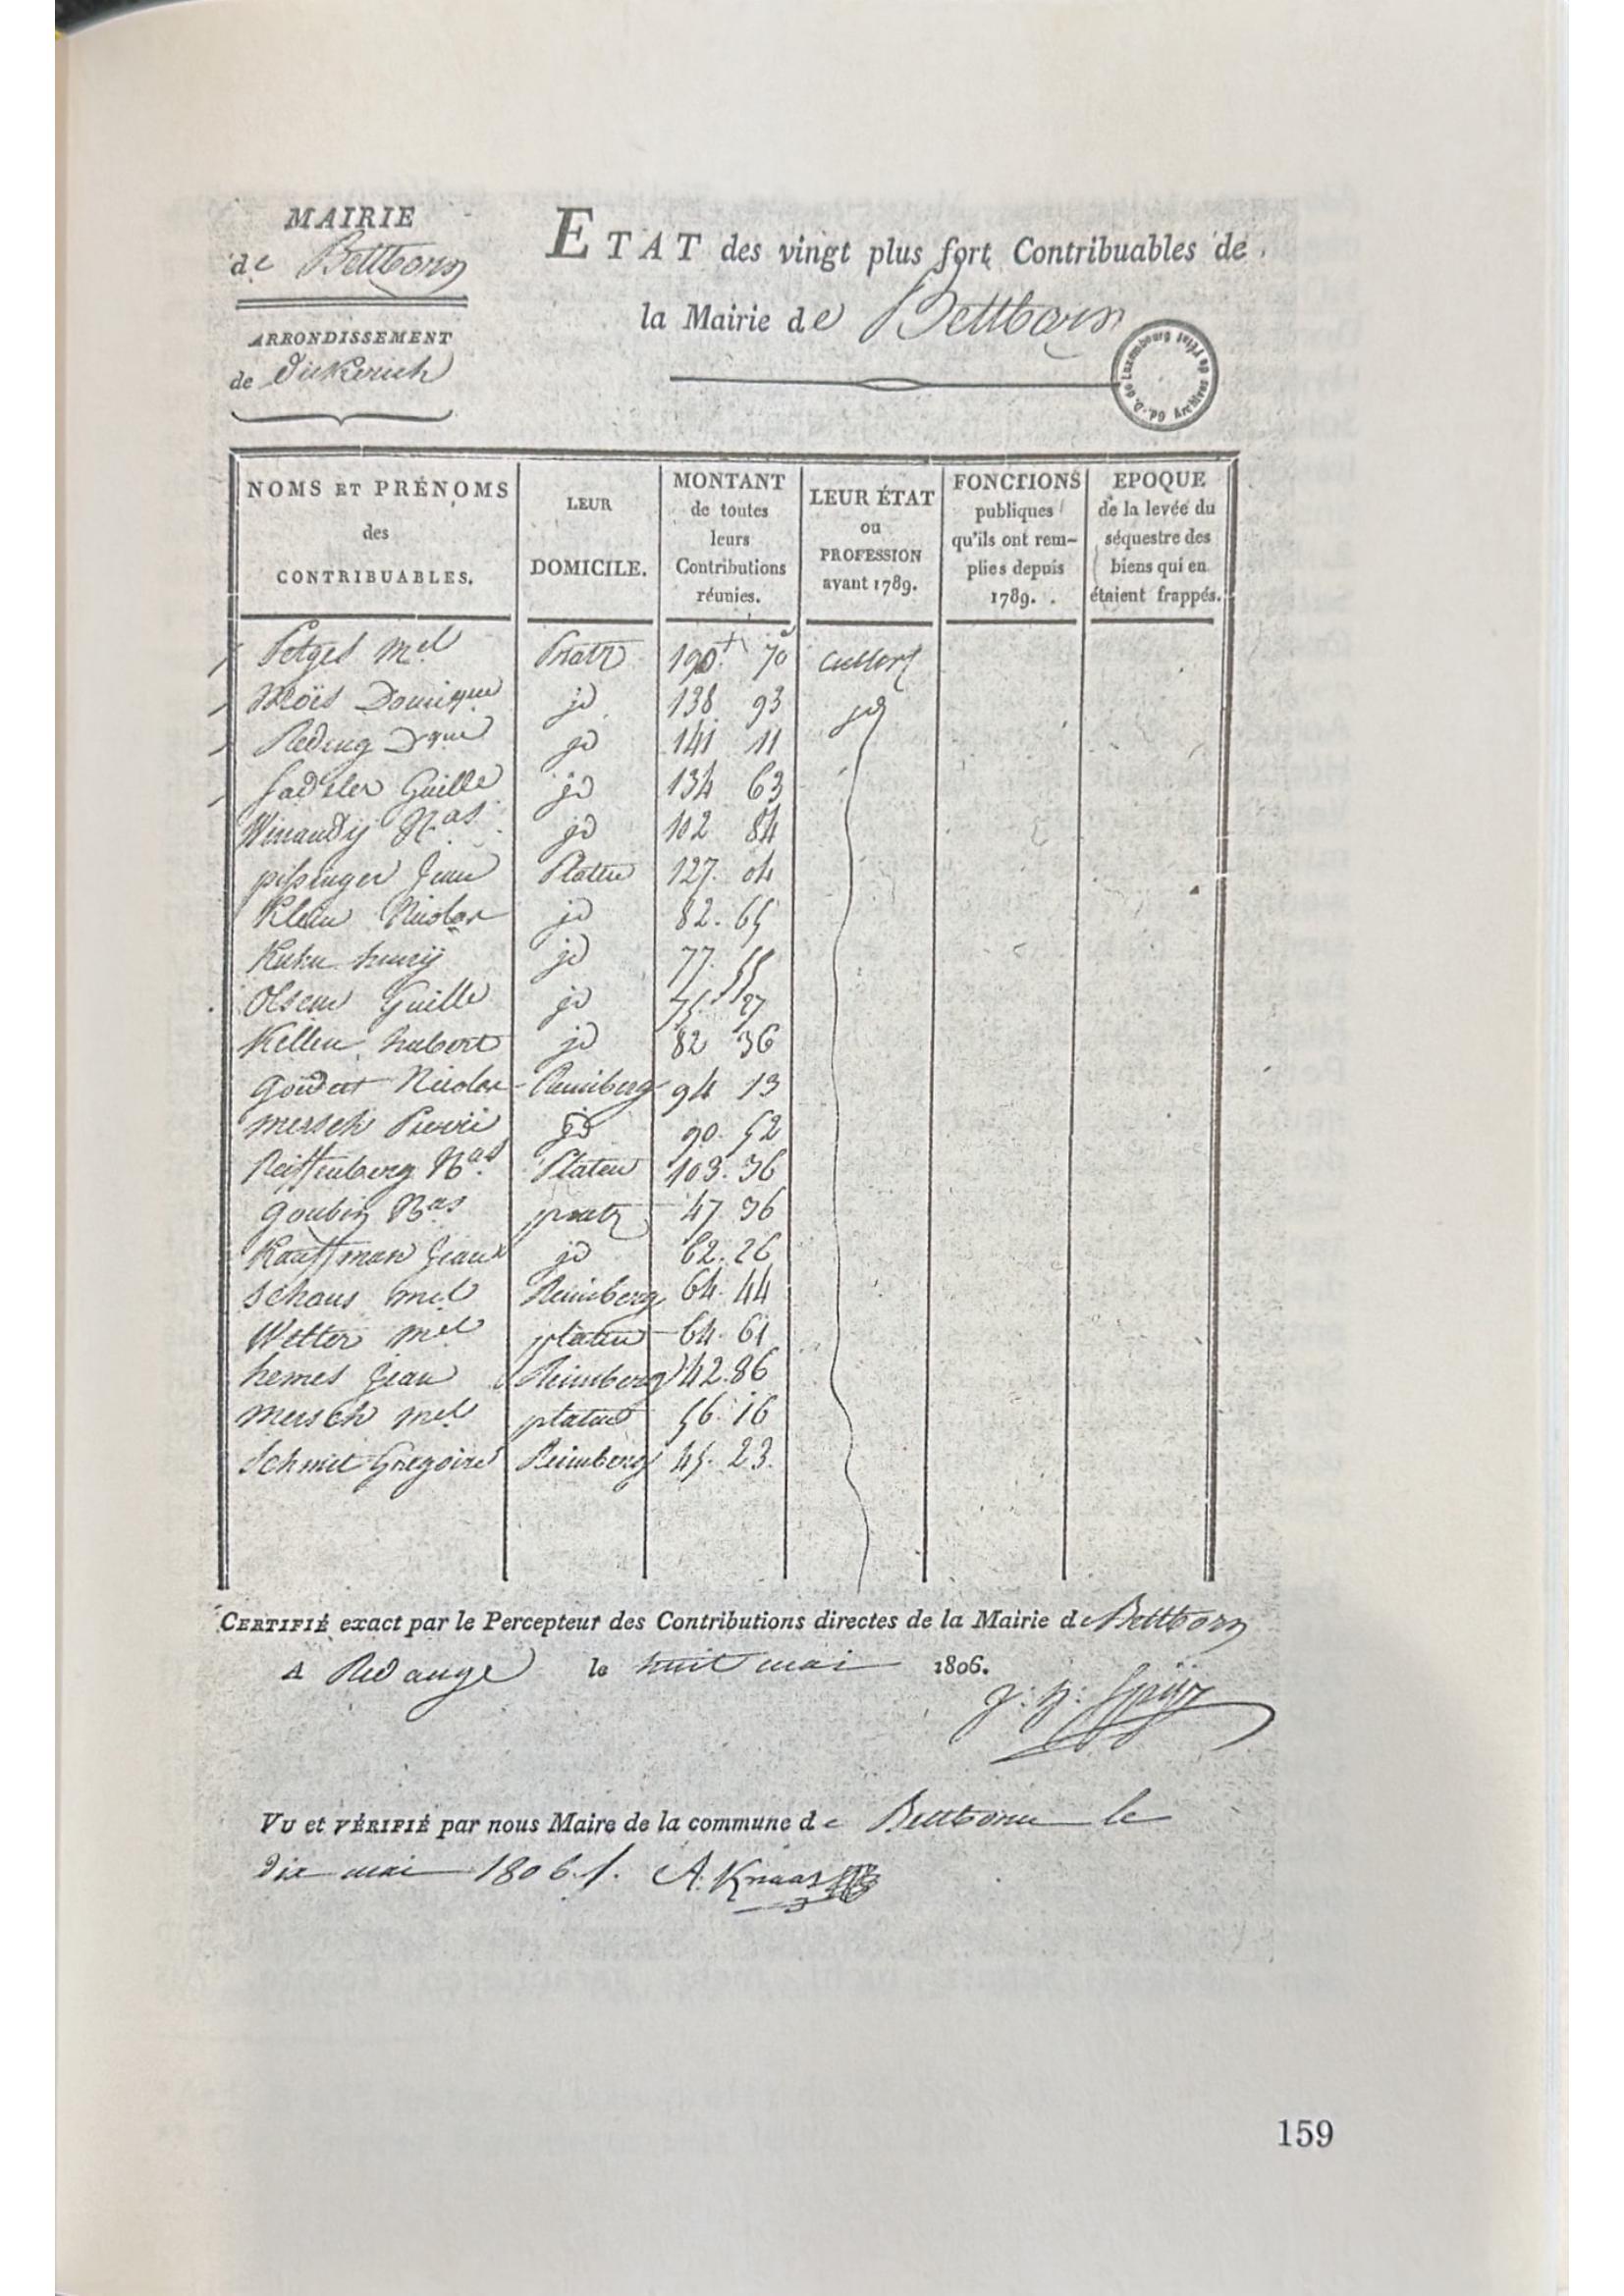 MAIRIE
de Bettborn
ARRONDISSEMENT
de Dickerich
ETAT des vingt plus fort Contribuables de
la Mairie de Bettborn
Gd.-D. de Luxembourg Archives de l'Etat
NOMS ET PRÉNOMS des CONTRIBUABLES.
LEUR DOMICILE.
MONTANT de toutes leurs Contributions réunies.
LEUR ÉTAT ou PROFESSION avant 1789.
FONCTIONS publiques qu'ils ont remplies depuis 1789.
EPOQUE de la levée du séquestre des biens qui en étaient frappés.
Petges mel Pratz 190 70 cultort
Moïs Domique jd 138 93 jd
Reding Dque jd 141 11
Guille jd 134 63
Winandij Nas jd 102 84
pissinger Jean Platen 127. 04
Klein Nicolas jd 82. 65
Kuhn henrij jd 77. 55
Olsem Guille jd 75. 27
Kellen hubert jd 82 36
goudert Nicolas Reimberg 94 13
mersch Pierre jd 90. 52
Reiffenberg Nas Platen 103. 36
goubin Nas pratz 47 36
Kauffman Jean jd 62. 26
schaus mel Reimberg 64. 44
Welter mel platen 64. 61
hemes Jean Reimberg 42.86
Mersch mel platen 56. 16
Schmit Gregoire Reimberg 45. 23.
CERTIFIÉ exact par le Percepteur des Contributions directes de la Mairie de Bettborn
A Redange le huit mai 1806.
VU et VÉRIFIÉ par nous Maire de la commune de Bettborn le
dix mai 1806. A. Knaas
159